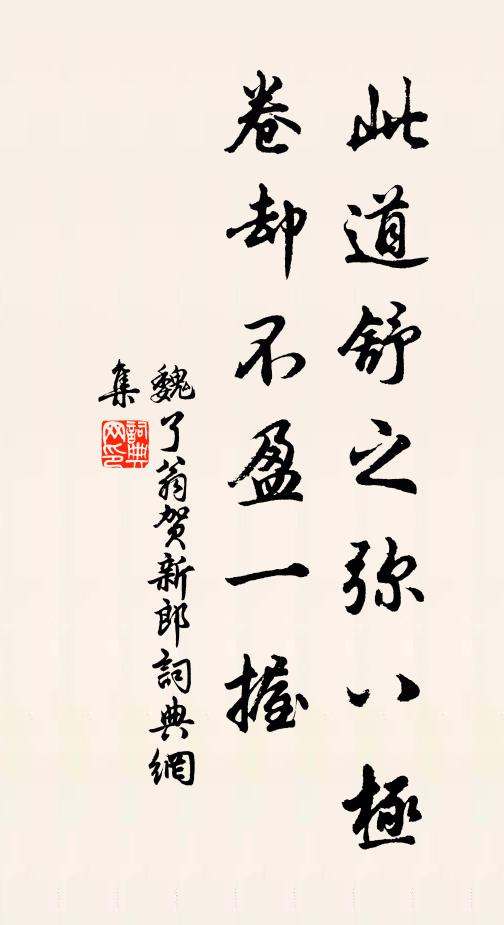 此道舒之弥八極
卷却不盈一握
魏了翁贺新郎詞典網
集
詞典
网印